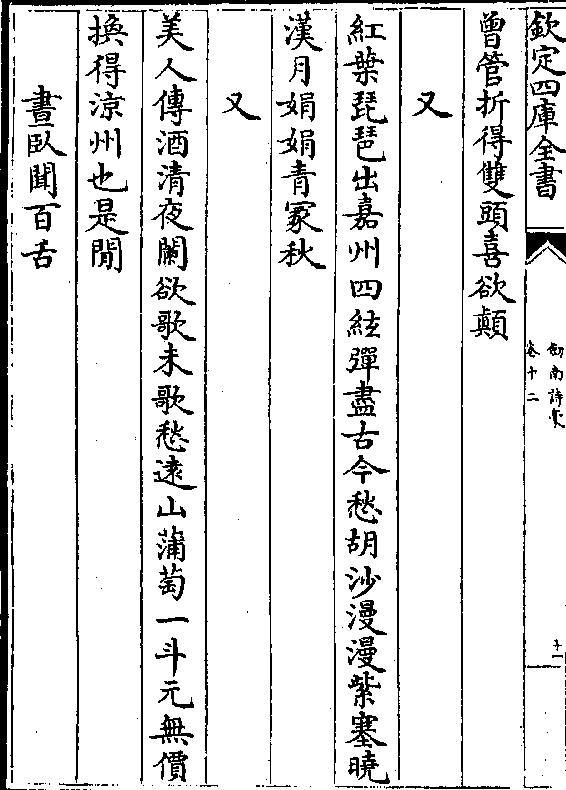 欽定四庫全書
劍南詩稾
卷十二
十一
曾管折得雙頭喜欲顛
又
紅葉琵琶出嘉州四絃彈盡古今愁胡沙漫漫紫塞曉
漢月娟娟青冡秋
又
美人傳酒清夜闌欲歌未歌愁遠山蒲萄一斗元無價
換得涼州也是閒
晝臥聞百舌